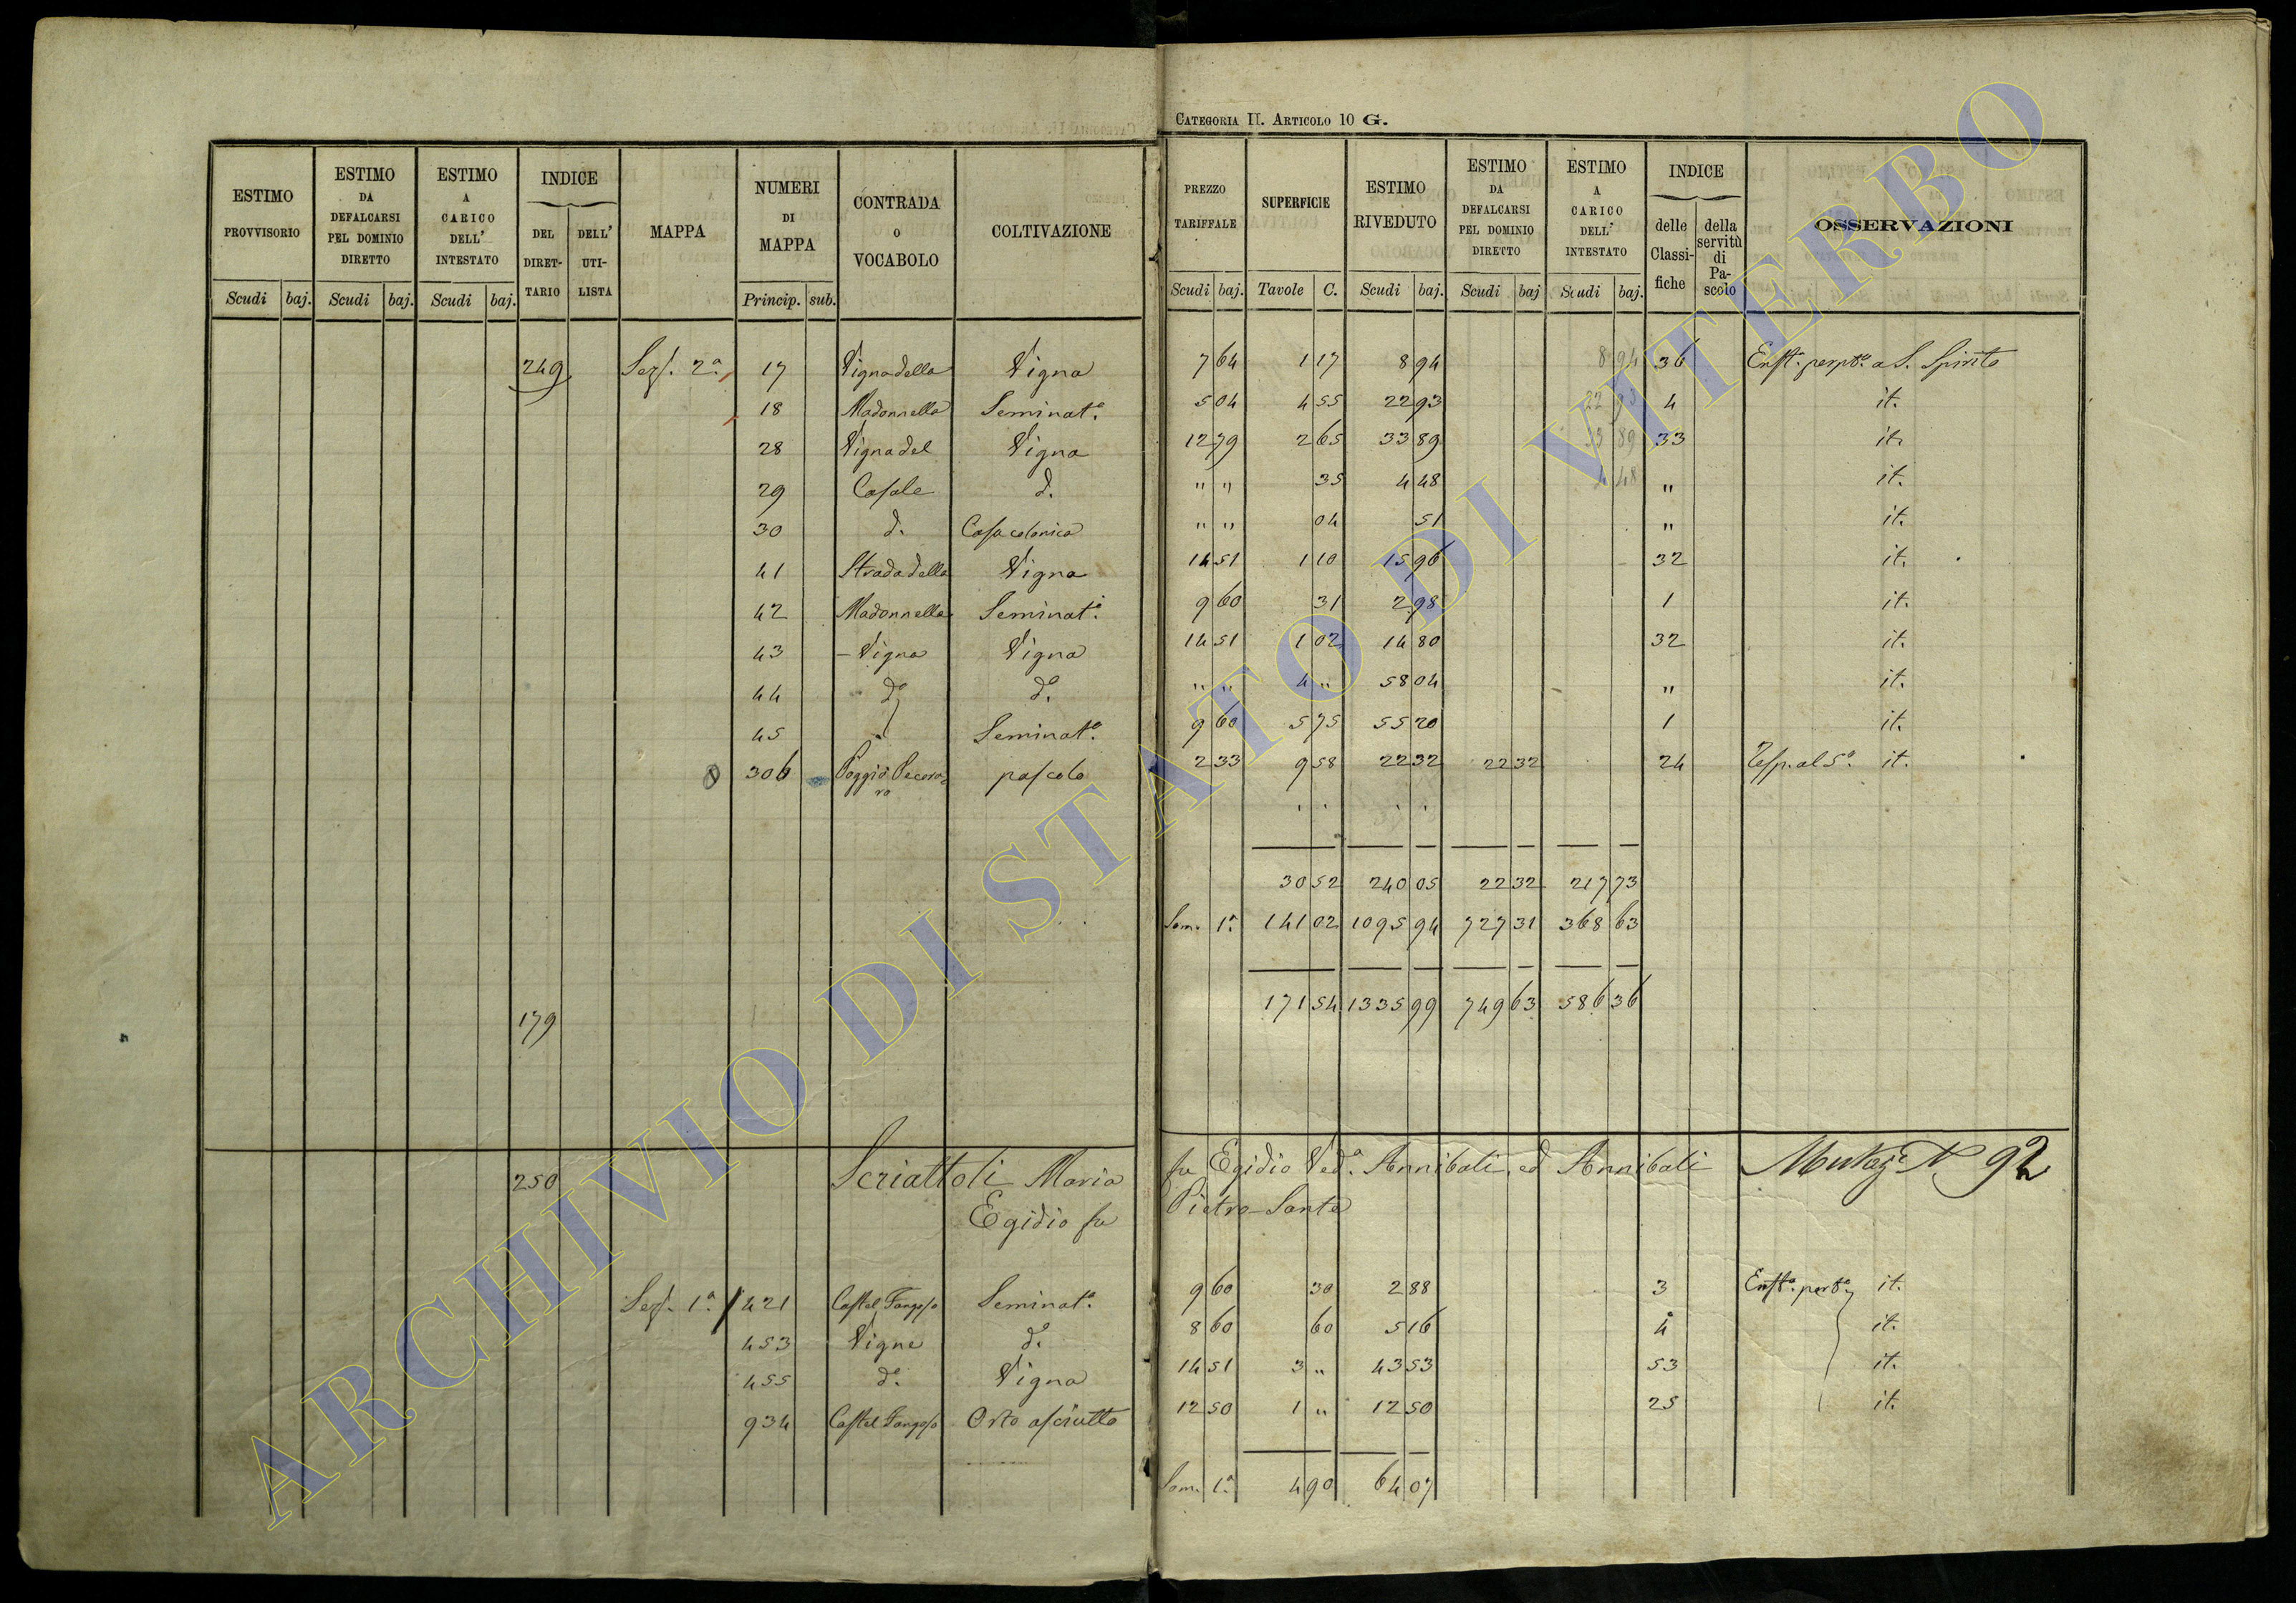 CATEGORIA II. ARTICOLO 10 G.
ESTIMO PROVVISORIO Scudi baj.
ESTIMO DA DEFALCARSI PEL DOMINIO DIRETTO Scudi baj.
ESTIMO A CARICO DELL' INTESTATO Scudi baj.
INDICE DEL DIRET-TARIO DELL' UTI-LISTA
MAPPA
NUMERI DI MAPPA Princip. sub.
CONTRADA O VOCABOLO
COLTIVAZIONE
PREZZO TARIFFALE Scudi baj.
SUPERFICIE Tavole C.
ESTIMO RIVEDUTO Scudi baj.
ESTIMO DA DEFALCARSI PEL DOMINIO DIRETTO Scudi baj
ESTIMO A CARICO DELL' INTESTATO Scudi baj.
INDICE delle Classi-fiche della servitù di Pa-scolo
OSSERVAZIONI
249 Sez. 2ª 17 Vigna della Vigna 7 64 1 17 8 94 8 94 36 Enft. perpt. a S. Spirito
18 Madonnella Seminat.º 5 04 4 55 22 93 22 93 4 it.
28 Vigna del Vigna 12 79 2 65 33 89 33 89 33 it.
29 Casale d. " " 35 4 48 4 48 " it.
30 d. Casa colonica " " 04 51 " it.
41 Strada della Vigna 14 51 1 10 15 96 32 it.
42 Madonnella Seminat.º 9 60 31 2 98 1 it.
43 – Vigna Vigna 14 51 1 02 14 80 32 it.
44 d.º d.º " " 4 " 58 04 " it.
45 Seminat.º 9 60 5 75 55 20 1 it.
306 Poggio Pecoraro pascolo 2 33 9 58 22 32 22 32 24 it.
30 52 240 05 22 32 217 73
Som. 1ª 141 02 1095 94 727 31 368 63
171 54 1335 99 749 63 586 36
179
250 Scriattoli Maria fu Egidio Ved.ª Annibali, ed Annibali Mutaz.e N 92
Egidio fu Pietro-Sante
Sez. 1ª 421 Castel Fangoso Seminat.º 9 60 30 2 88 3 Enft.ª perp.ª it.
453 Vigne d.º 8 60 60 5 16 4 it.
455 d.º Vigna 14 51 3 " 43 53 53 it.
934 Castel Fangoso Orto asciutto 12 50 1 " 12 50 25 it.
Som. 1ª 4 90 64 07
ARCHIVIO DI STATO DI VITERBO